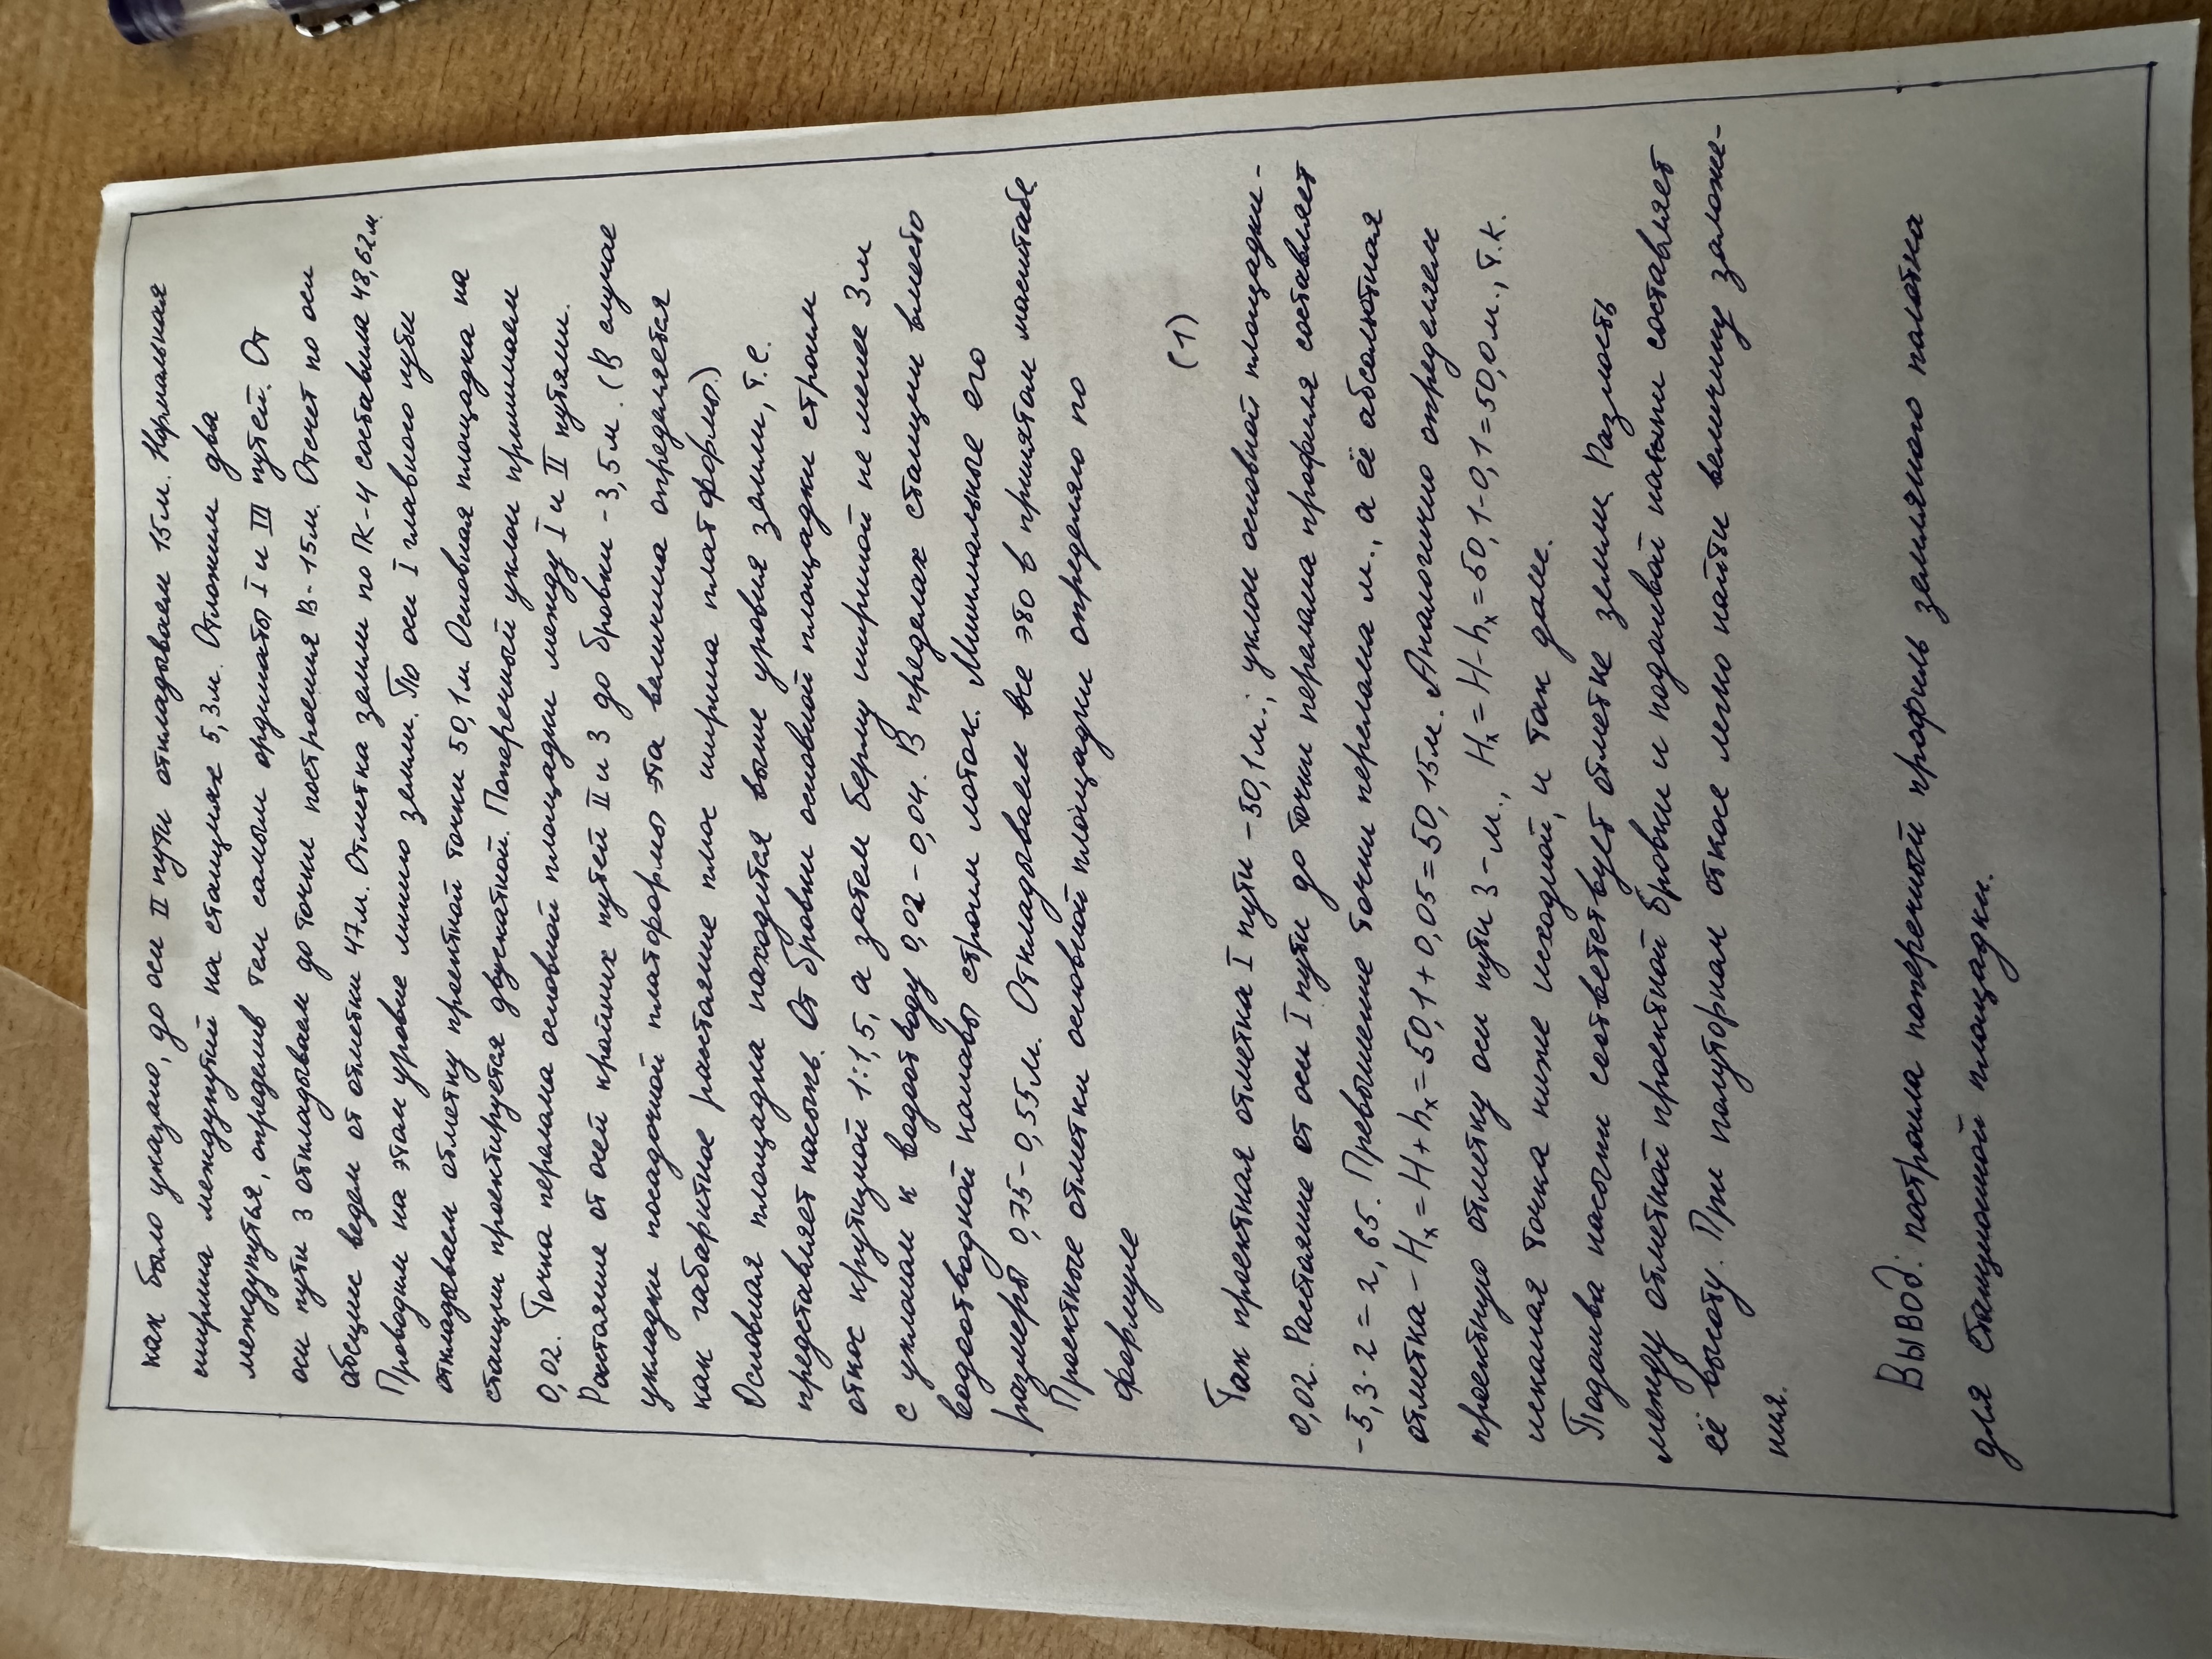 как было указано, до оси II пути откладываем 15м. Нормальная
ширина междупутий на станциях 5,3м. Отложим два
междупутья, определив тем самым ординаты I и III путей. От
оси пути 3 откладываем до точки построения В-15м. Отсчет по оси
абсцисс ведем от отметки 47м. Отметка земли по ПК-4 составила 48,62м.
Проводим на этом уровне линию земли. По оси I главного пути
откладываем отметку проектной точки 50,1м. Основная площадка на
станции проектируется двускатной. Поперечный уклон принимаем
0,02. Точка перелома основной площадки между I и II путями.
Растояние от осей крайних путей II и 3 до бровки -3,5м. (В случае
укладки посадочной платформы эта величина определяется
как габаритное растояние плюс ширина платформы.)
Основная площадка находится выше уровня земли, т.е.
представляет насыпь. От бровки основной площадки строим
откос крутизной 1:1,5, а затем берму шириной не менее 3м
с уклоном к водоотводу 0,02-0,04. В пределах станции вместо
водоотводной канавы строим лоток. Минимальные его
размеры 0,75-0,55м. Откладываем все это в принятом масштабе
Проектные отметки основной площадки определяю по
формуле
(1)
Так проектная отметка I пути -50,1м.; уклон основной площадки-
0,02. Растояние от оси I пути до точки перелома профиля составляет
-5,3·2=2,65. Превышение точки перелома м., а её абсолютная
отметка-Hx=H+hx=50,1+0,05=50,15м. Аналогично определяем
проектную отметку оси пути 3-м., Hx=H-hx=50,1-0,1=50,0м., т.к.
искомая точка ниже исходной, и так далее.
Подошва насыпи соответствует отметке земли. Разность
между отметкой проектной бровки и подошвой насыпи составляет
её высоту. При полуторном откосе легко найти величину заложе-
ния.
Вывод: построила поперечный профиль земляного полотна
для станционной площадки.